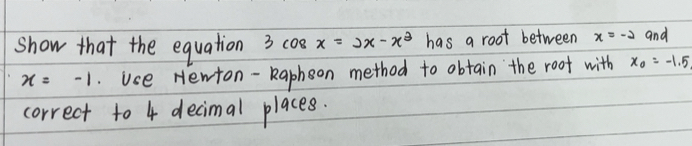 Show that the equation 3 cos x = 2x - x³ has a root between x = -2 and
x = -1. Use Newton - Raphson method to obtain the root with x₀ = -1.5,
correct to 4 decimal places.